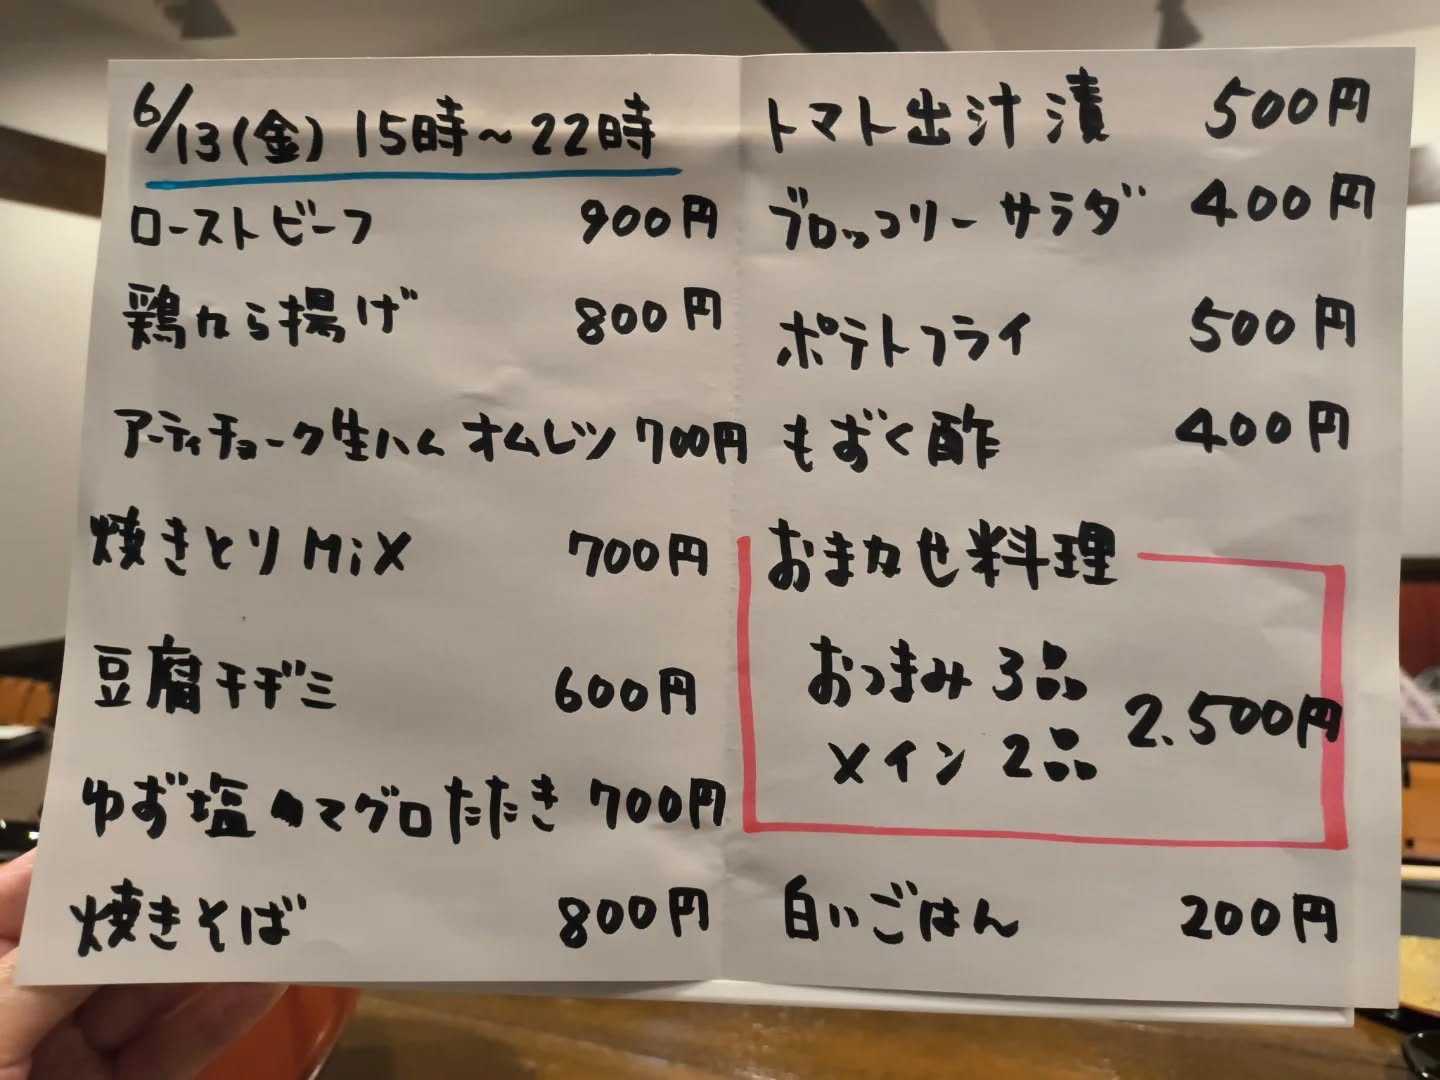 6/13(金) 15時～22時
ローストビーフ 900円
鶏から揚げ 800円
アーティチョーク生ハム オムレツ 700円
焼きとりMiX 700円
豆腐チヂミ 600円
ゆず塩 マグロたたき 700円
焼きそば 800円
トマト出汁漬 500円
ブロッコリーサラダ 400円
ポテトフライ 500円
もずく酢 400円
おまかせ料理
おつまみ 3品
メイン 2品
2.500円
白いごはん 200円